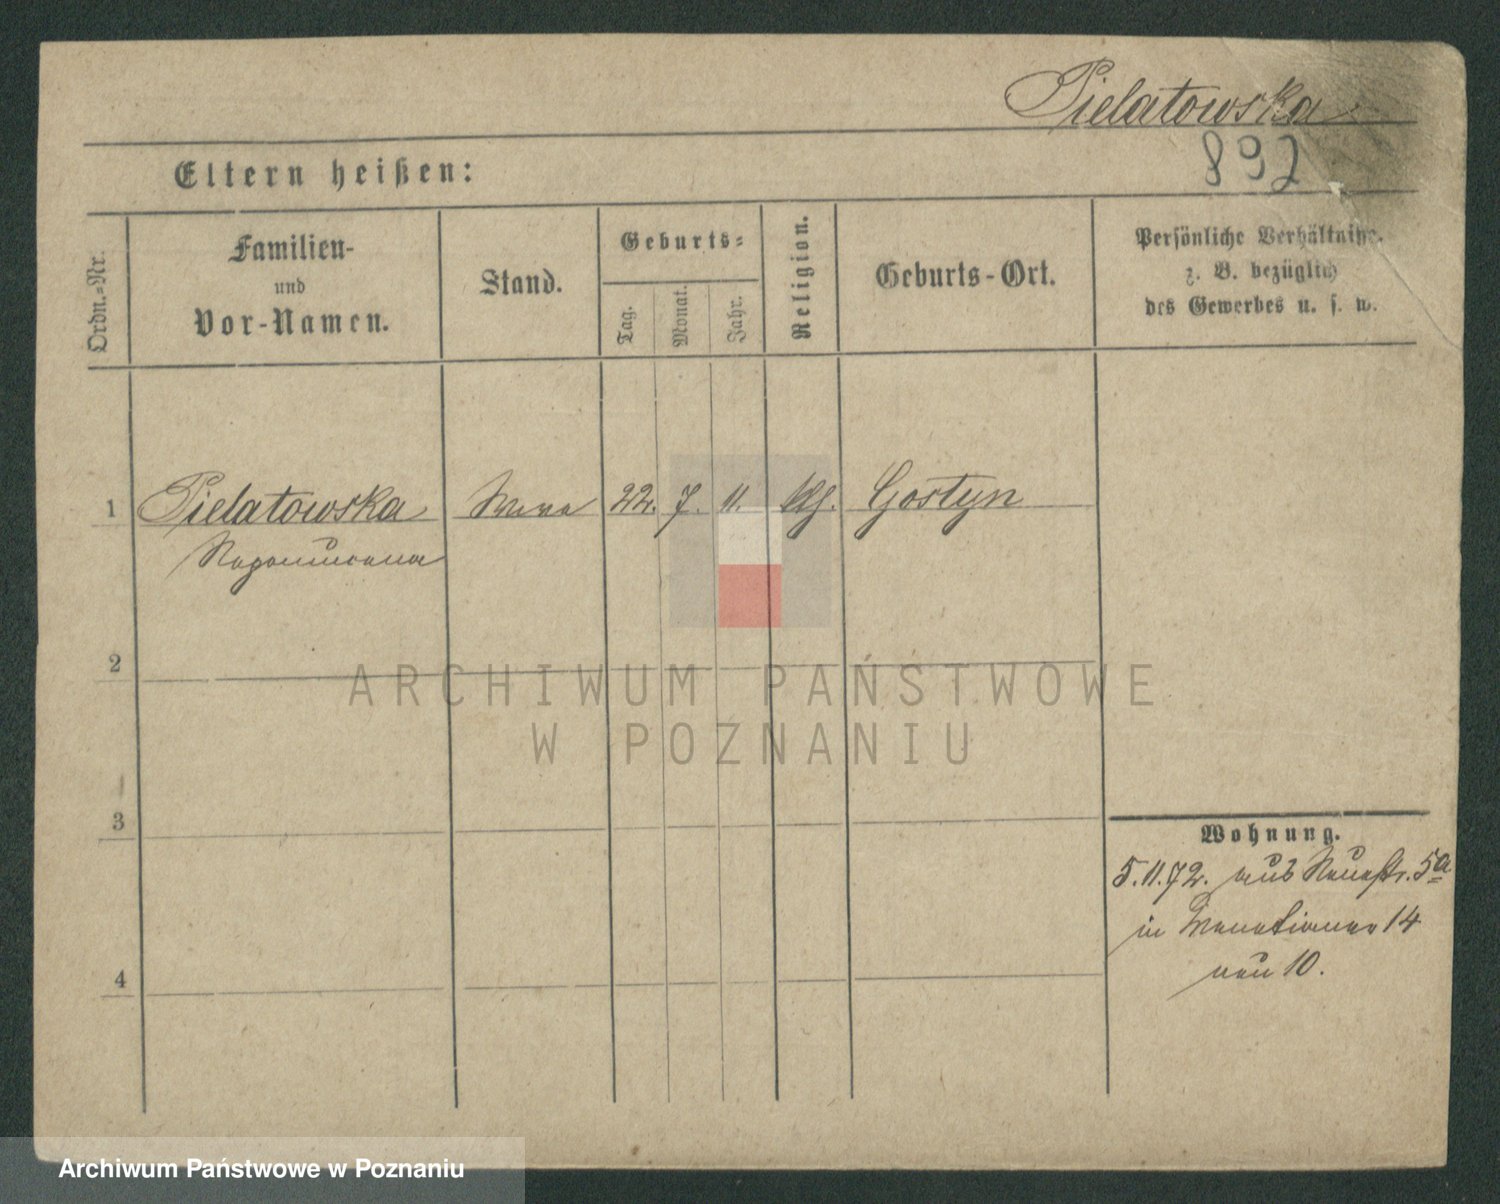 Pielatowska
892
Eltern heißen:
Ordn.-Nr.
Familien-
und
Vor-Namen.
Stand.
Geburts-
Tag.
Monat.
Jahr.
Religion.
Geburts-Ort.
Persönliche Verhältnisse.
z. B. bezüglich
des Gewerbes u. s. w.
1 Pielatowska 22. 7. 11. Gostyn
Nepomucena
2
3
4
Wohnung.
5.11.72. aus Neuestr. 5a
in Venetianer 14
neu 10.
ARCHIWUM PAŃSTWOWE
W POZNANIU
Archiwum Państwowe w Poznaniu